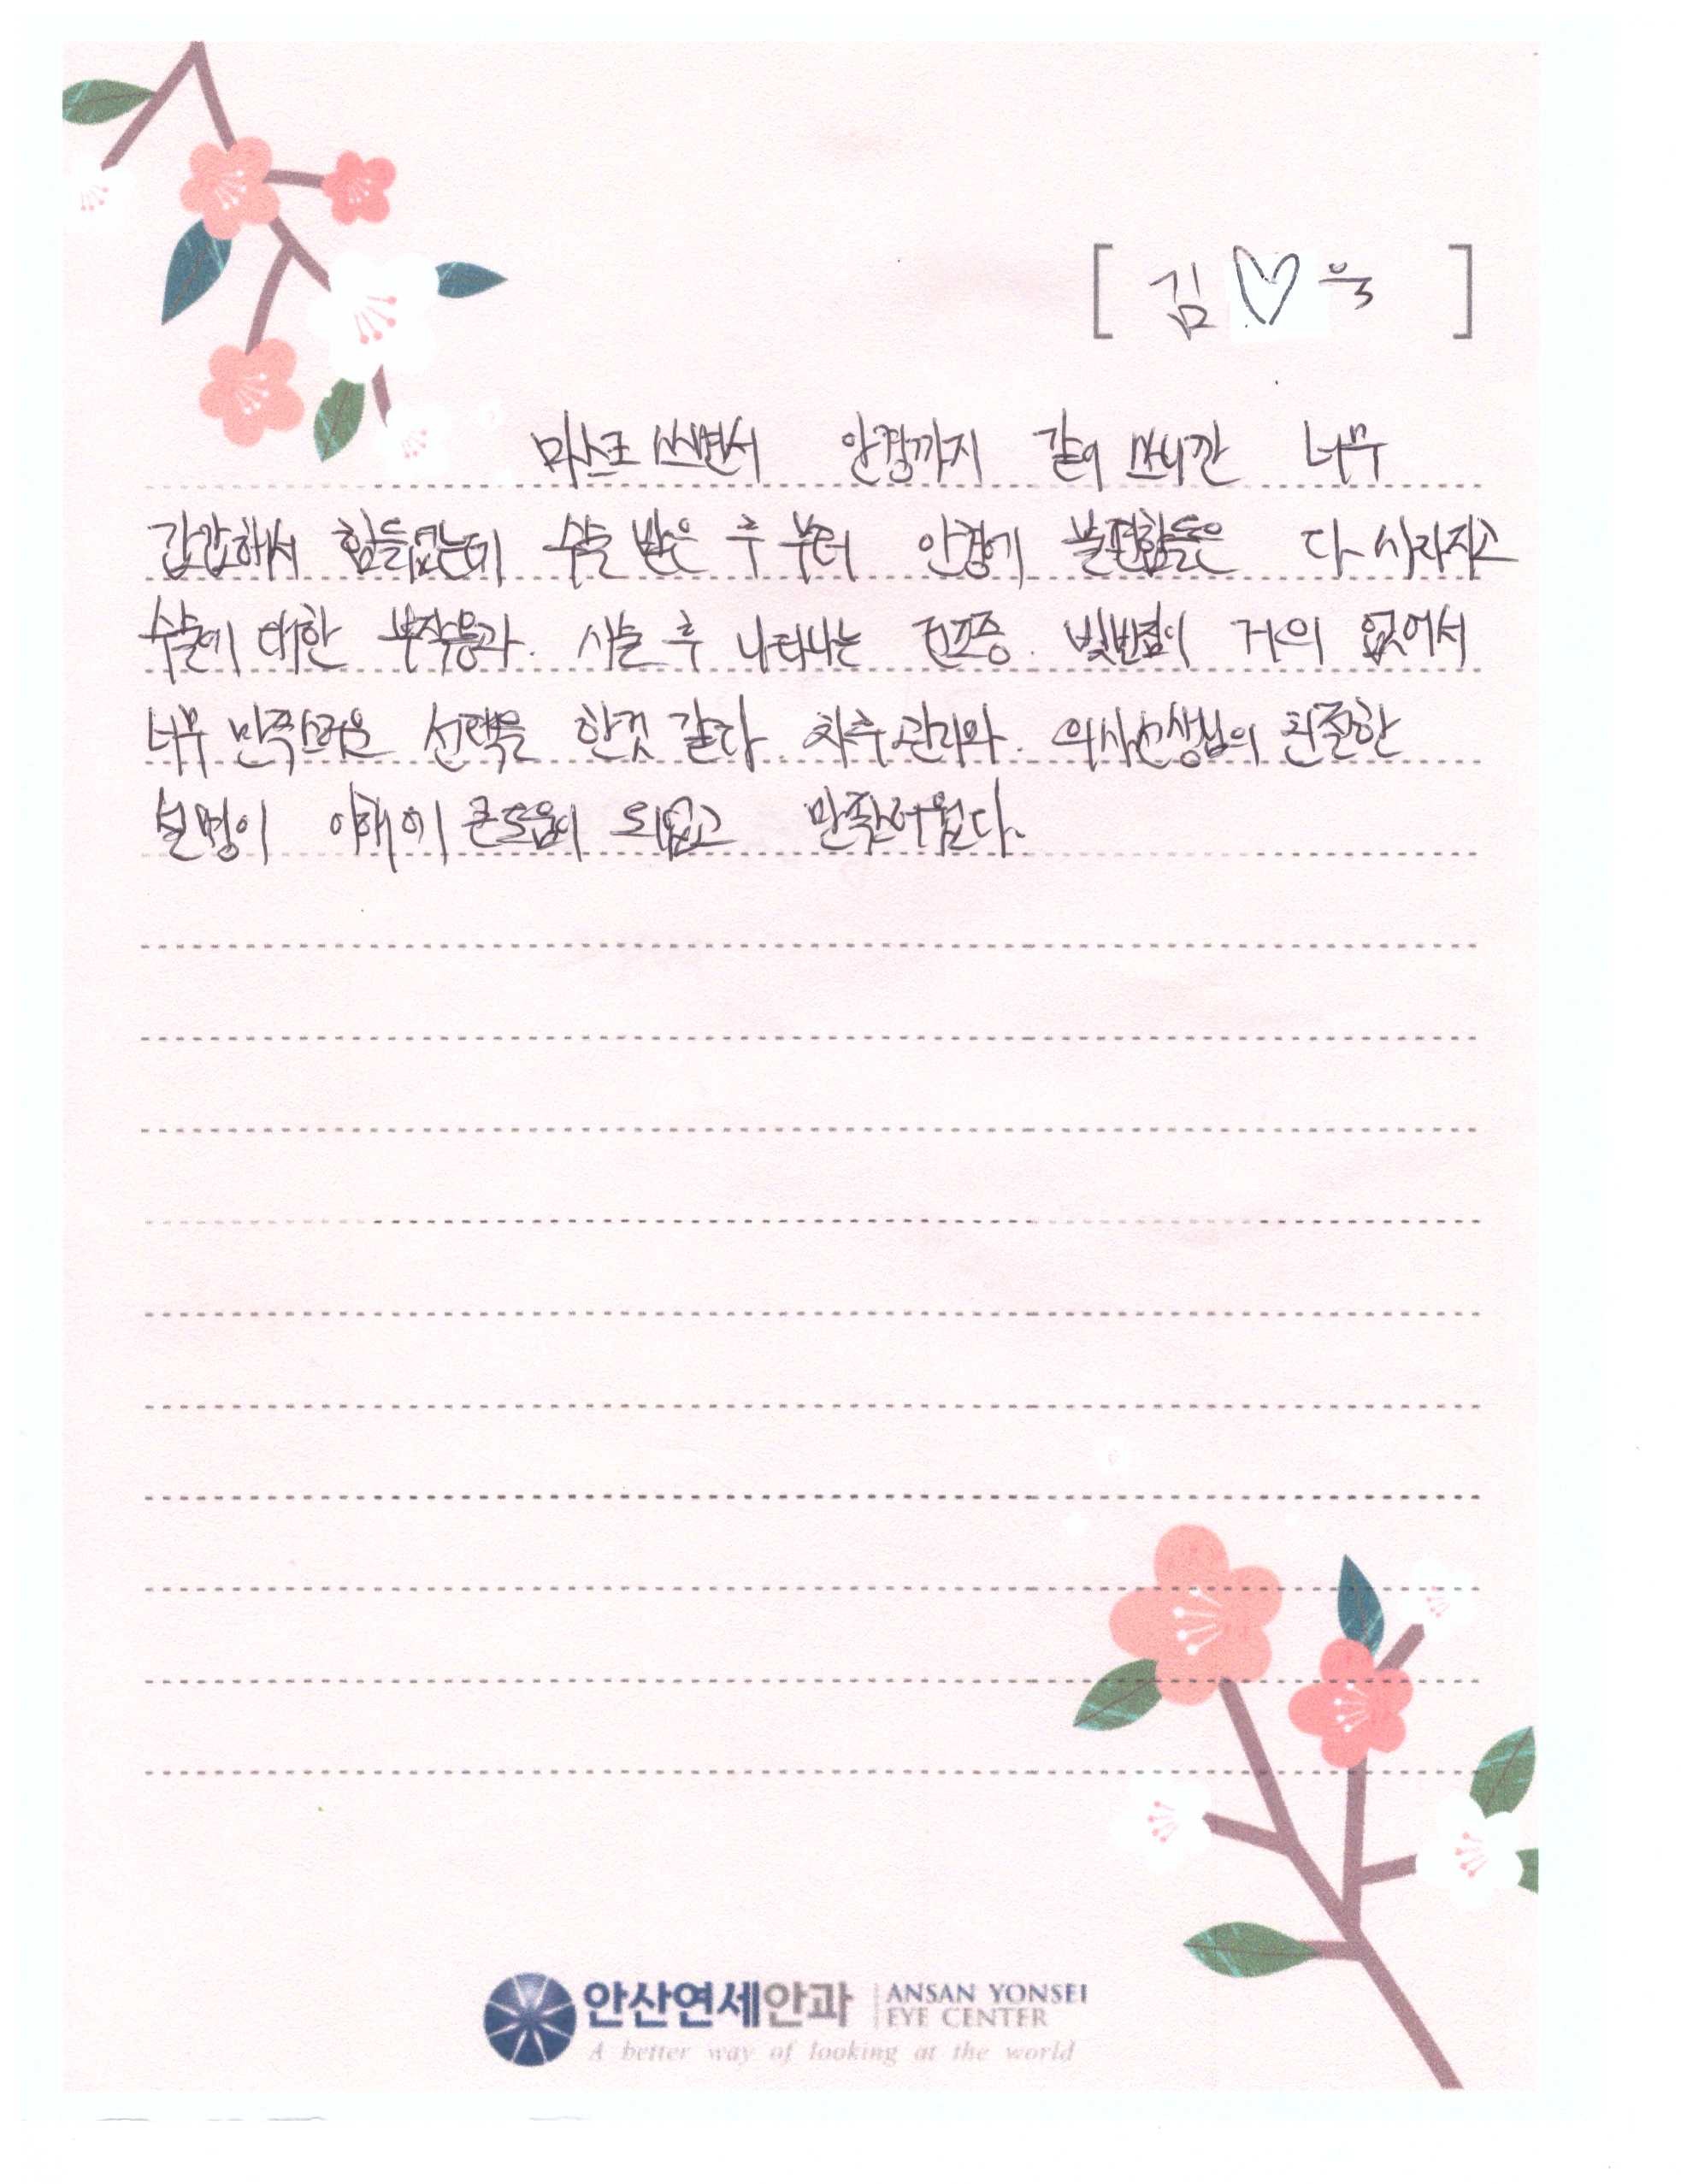 [ 김♡욱 ]
마스크 쓰면서 안경까지 같이 쓰니깐 너무
갑갑해서 힘들었는데 수술 받은 후 부터 안경에 불편함들은 다 사라지고
수술에 대한 부작용과. 시술 후 나타나는 건조증. 빛번짐이 거의 없어서
너무 만족스러운 선택을 한것 같다. 차후 관리와. 의사선생님의 친절한
설명이 이해에 큰도움이 되었고 만족스러웠다.
안산연세안과 ANSAN YONSEI
EYE CENTER
A better way of looking at the world